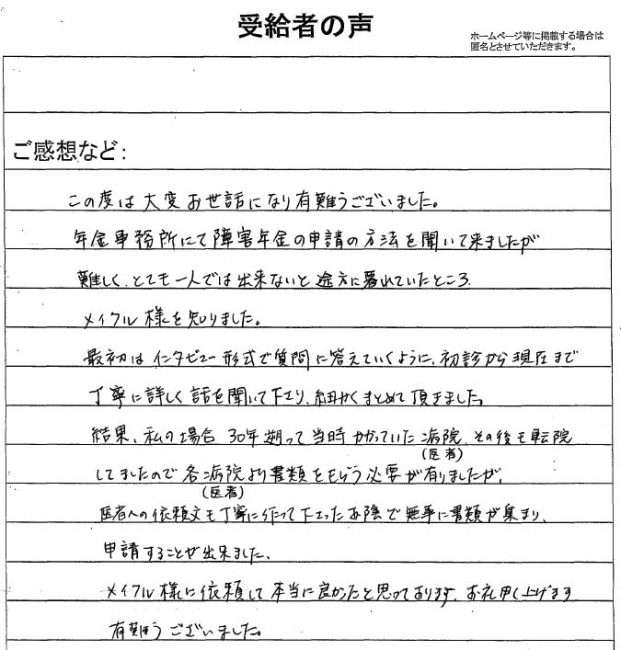 受給者の声
ホームページ等に掲載する場合は
匿名とさせていただきます。
ご感想など：
この度は大変お世話になり有難うございました。
年金事務所にて障害年金の申請の方法を聞いて来ましたが
難しく、とても一人では出来ないと途方に暮れていたところ
メイクル様を知りました。
最初はインタビュー形式で質問に答えていくように、初診から現在まで
丁寧に詳しく話を聞いて下さり、細かくまとめて頂きました。
結果、私の場合30年遡って当時かかっていた病院、その後も転院
(医者)
してましたので各病院より書類をもらう必要が有りましたが、
(医者)
医者への依頼文も丁寧に作って下さったお陰で無事に書類が集まり、
申請することが出来ました。
メイクル様に依頼して本当に良かったと思っております。お礼申し上げます
有難うございました。